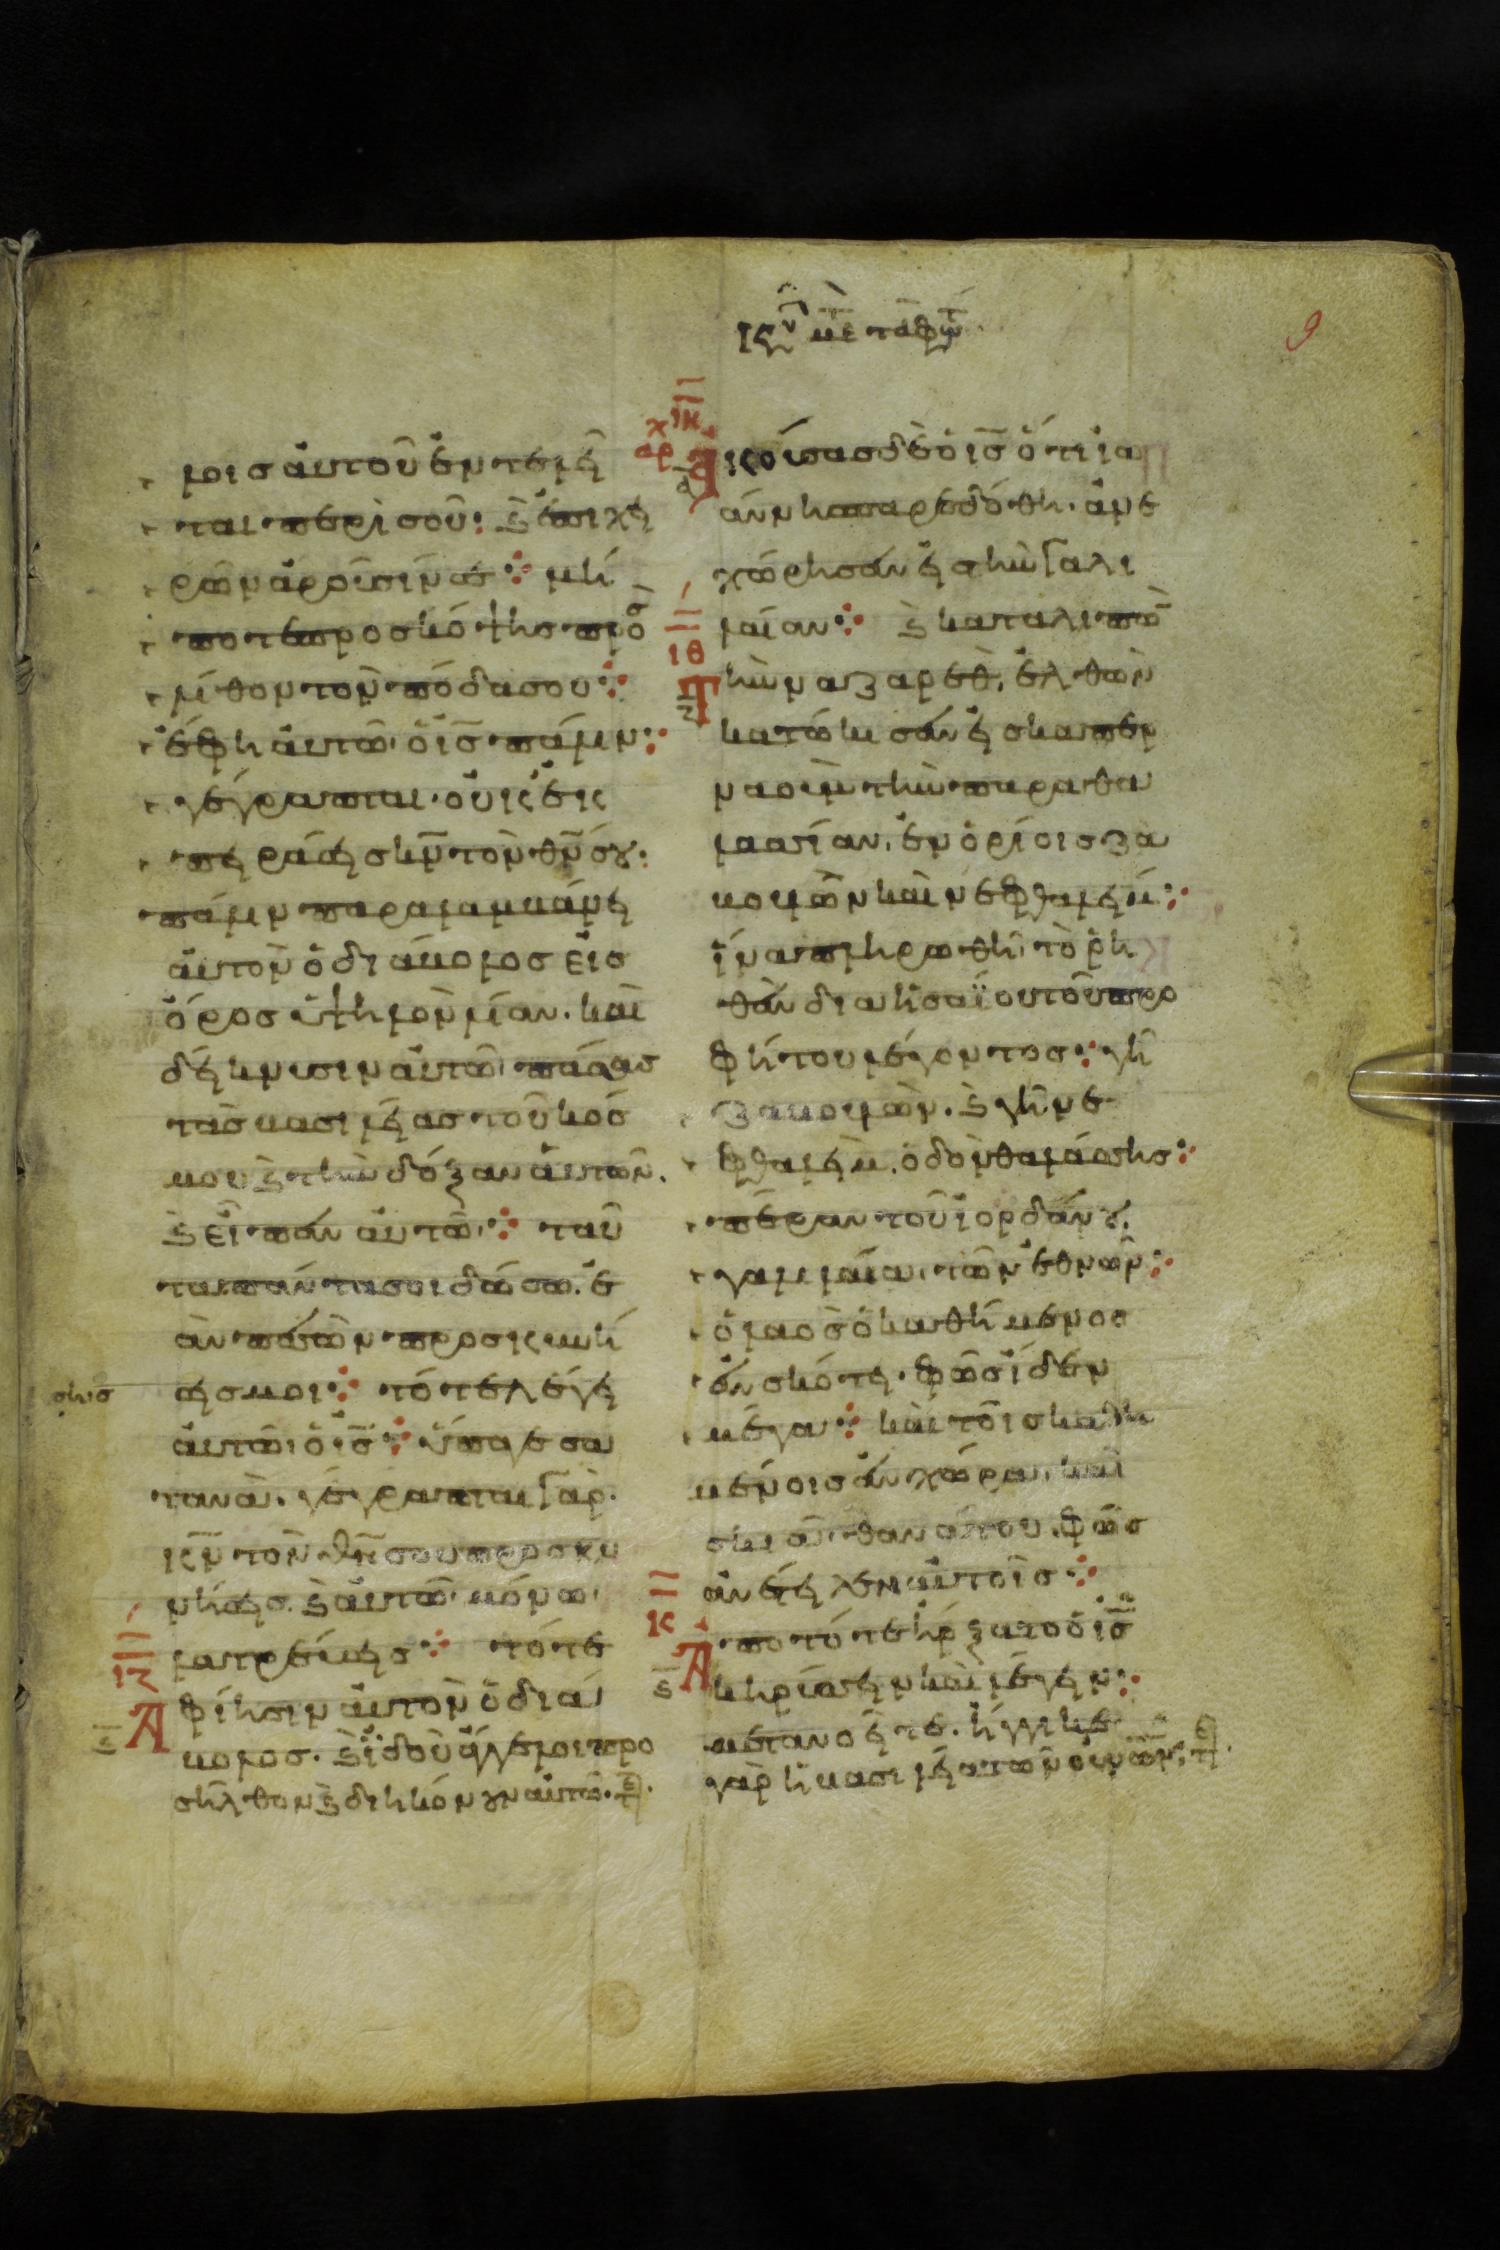 κυ μετὰ τὰ φῶτ
9
λοις αὐτοῦ ἐντελεῖ
ται περὶ σοῦ· καὶ ἐπὶ χει
ρῶν ἀροῦσίν σε· μή
ποτε προσκόψης πρὸς
λίθον τὸν πόδα σου·
ἔφη αὐτῶ ὁ ις πάλιν·
γέγραπται· οὐκ ἐκ
πειράσεις κν τὸν θν σου·
πάλιν παραλαμβάνει
αὐτὸν ὁ διάβολος εἰς
ὄρος ὑψηλὸν λίαν. καὶ
δείκνυσιν αὐτῶ πάσας
τὰς βασιλείας τοῦ κόσ
μου καὶ τὴν δόξαν αὐτῶν.
καὶ εἶπεν αὐτῶ· ταῦ
τα πάντα σοι δώσω. ἐ
ὰν πεσὼν προσκυνή
σης μοι· τότε λέγει
αὐτῶ ὁ ις· ὕπαγε σα
τανᾶ. γέγραπται γὰρ.
κν τὸν θν σου προσκυ
νήσεις καὶ αὐτῶ μόνω
λατρεύσεις· τότε
ιζ
Ἀφίησιν αὐτὸν ὁ διά
βολος. καὶ ἰδοὺ ἄγγελοι προ
σῆλθον καὶ διηκόνουν αὐτῶ. τε
ιη
ἀρχ
Ἀκούσας δὲ ὁ ις ὅτι ἰω
άννης παρεδόθη. ἀνε
χώρησεν εἰς τὴν γαλι
λαίαν· καὶ καταλιπὼν
ιθ
Τὴν ναζαρὲθ, ἐλθὼν
κατώκησεν εἰς καπερ
ναοὺμ τὴν παραθα
λασσίαν. ἐν ὁρίοις ζα
βουλὼν καὶ νεφθαλείμ·
ἵνα πληρωθῆ τὸ ῥη
θὲν διὰ ἡσαΐου τοῦ προ
φήτου λέγοντος· γῆ
ζαβουλών. καὶ γῆ νε
φθαλείμ. ὁδὸν θαλάσσης·
πέραν τοῦ ἰορδάνου.
γαλιλαία τῶν ἐθνῶν·
ὁ λαὸς ὁ καθήμενος
ἐν σκότει. φῶς εἶδεν
μέγα· καὶ τοῖς καθη
μένοις ἐν χώρα καὶ
σκιᾶ θανάτου. φῶς
ἀνέτειλεν αὐτοῖς·
κ
Ἀπὸ τότε ἤρξατο ὁ ις
κηρύσσειν καὶ λέγειν·
μετανοεῖτε. ἤγγικε
γὰρ ἡ βασιλεία τῶν οὐνῶν· τε